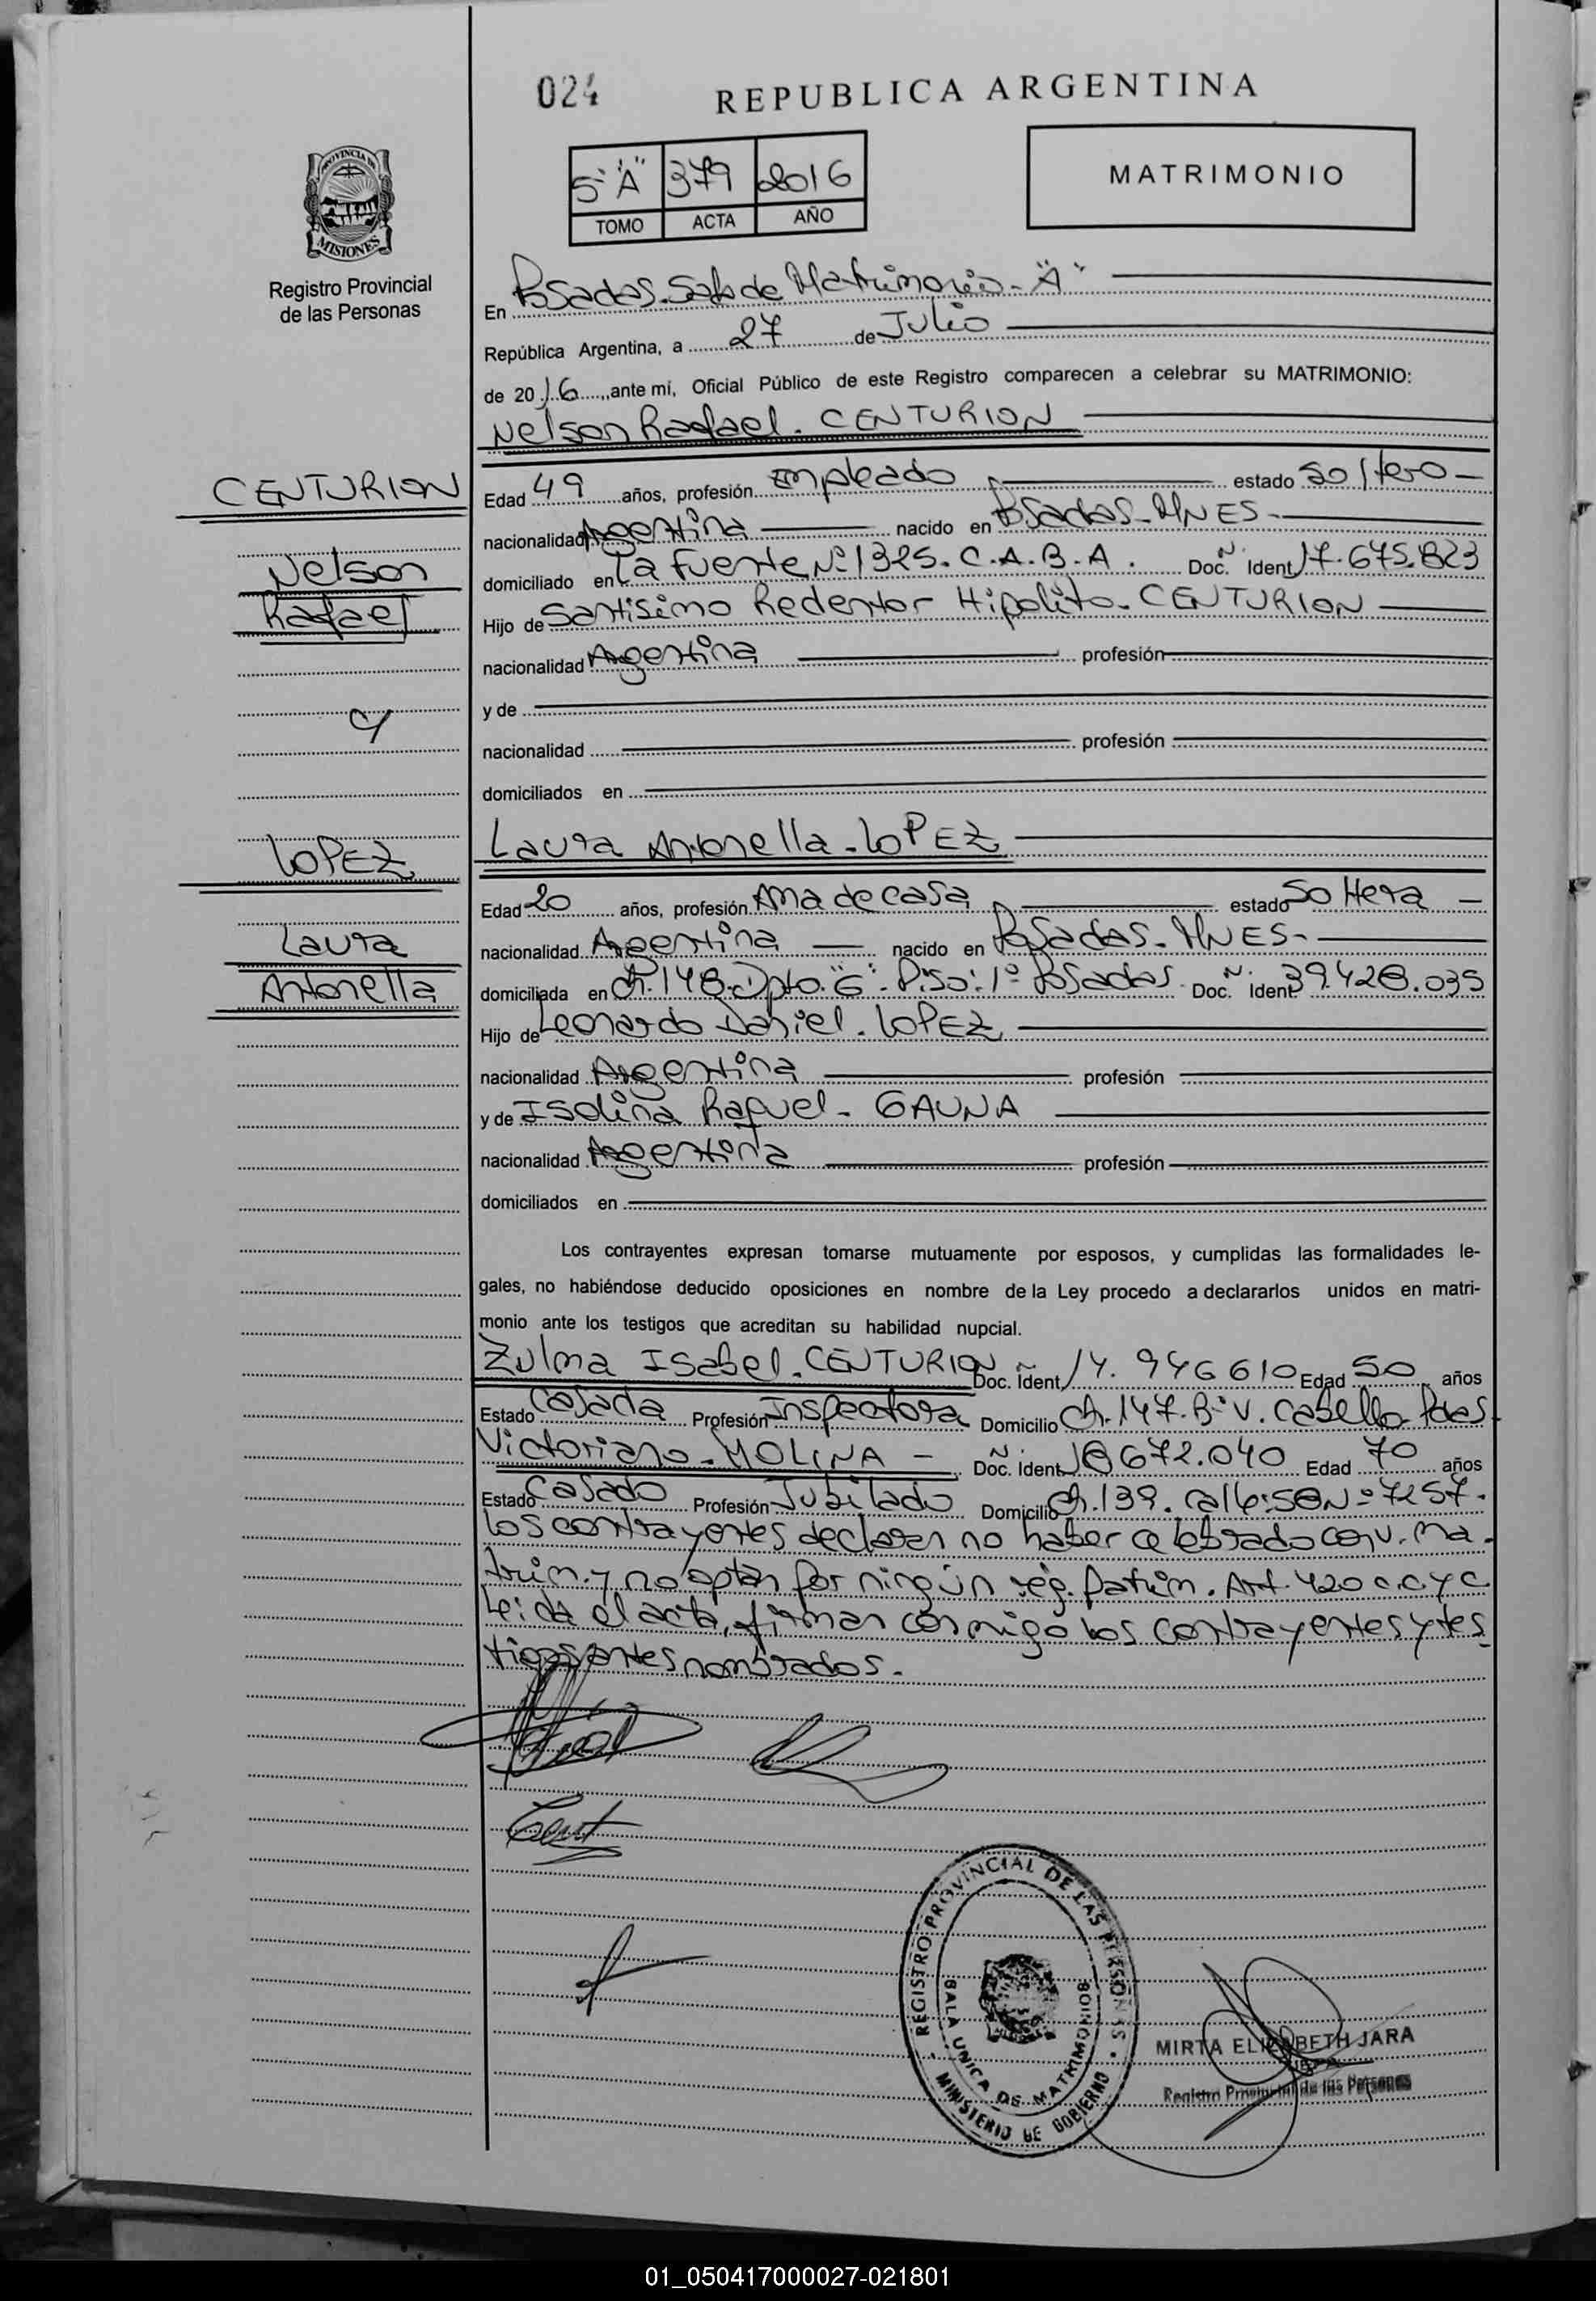 024
REPUBLICA ARGENTINA
5º "A" 379 2016
TOMO ACTA AÑO
MATRIMONIO
PROVINCIA DE
MISIONES
Registro Provincial
de las Personas
En Posadas. Sala de Matrimonio - "A"
República Argentina, a 27 de Julio
de 2016, ante mí, Oficial Público de este Registro comparecen a celebrar su MATRIMONIO:
Nelson Rafael. CENTURION
CENTURION
Nelson
Rafael
c/
LOPEZ
Laura
Antonella
Edad 49 años, profesión Empleado estado Soltero -
nacionalidad Argentina nacido en Posadas - MNES -
domiciliado en La Fuente Nº 1325. C.A.B.A. Doc. Ident N: 17.675.823
Hijo de Santisimo Redentor Hipolito. CENTURION
nacionalidad Argentina profesión
y de
nacionalidad profesión
domiciliados en
Laura Antonella. LOPEZ
Edad 20 años, profesión Ama de casa estado Soltera -
nacionalidad Argentina nacido en Posadas - MNES -
domiciliada en Ch. 148. Dpto. "G". Piso: 1º Posadas. Doc. Ident N: 39.428.035
Hijo de Leonardo Daniel. LOPEZ
nacionalidad Argentina profesión
y de Isolina Raquel - GAUNA
nacionalidad Argentina profesión
domiciliados en
Los contrayentes expresan tomarse mutuamente por esposos, y cumplidas las formalidades le-
gales, no habiéndose deducido oposiciones en nombre de la Ley procedo a declararlos unidos en matri-
monio ante los testigos que acreditan su habilidad nupcial.
Zulma Isabel. CENTURION Doc. Ident. 17.946610 Edad 50 años
Estado Casada Profesión Inspectora Domicilio Ch. 147. Bº V. Cabello. Pdas
Victoriano - MOLINA - Doc. Ident. N: 8672.040 Edad 70 años
Estado Casado Profesión Jubilado Domicilio Ch. 139. calle: 50 Nº 7257.
Los contrayentes declaran no haber celebrado conv. ma-
trim. y no optan por ningún rég. Patrim. Art. 420 C.C y C
Leida el acta, firman conmigo los contrayentes y tes
tigos antes nombrados.
Cent
REGISTRO PROVINCIAL DE LAS PERSONAS
SALA UNICA DE MATRIMONIOS
MINISTERIO DE GOBIERNO
MIRTA ELIZABETH JARA
JEFA
Registro Provincial de las Personas
01_050417000027-021801